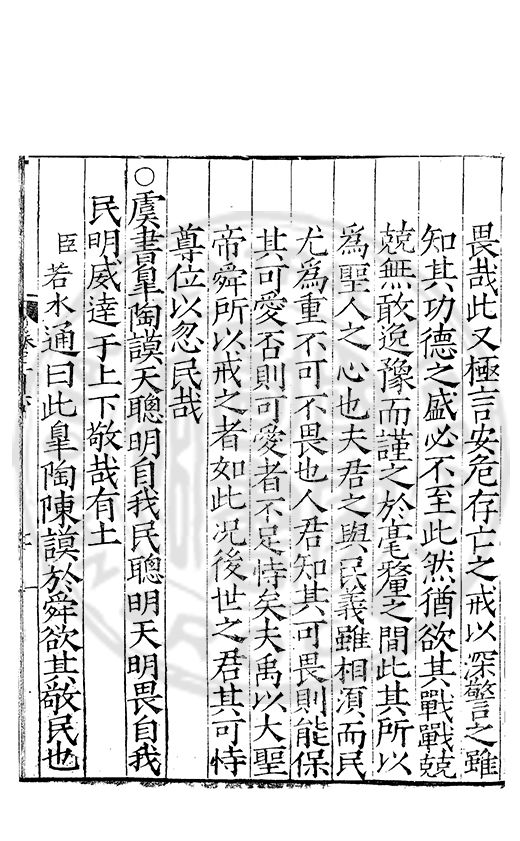 畏哉此又極言安危存亡之戒以深警之雖
知其功德之盛必不至此然猶欲其戰戰兢
兢無敢逸豫而謹之於毫釐之間此其所以
爲聖人之心也夫君之與民義雖相須而民
尤爲重不可不畏也人君知其可畏則能保
其可愛否則可愛者不足恃矣夫禹以大聖
帝舜所以戒之者如此况後世之君其可恃
尊位以忽民哉
○虞書臯陶謨天聰明自我民聰明天明畏自我
民明威達于上下敬哉有土
臣若水通曰此臯陶陳謨於舜欲其敬民也